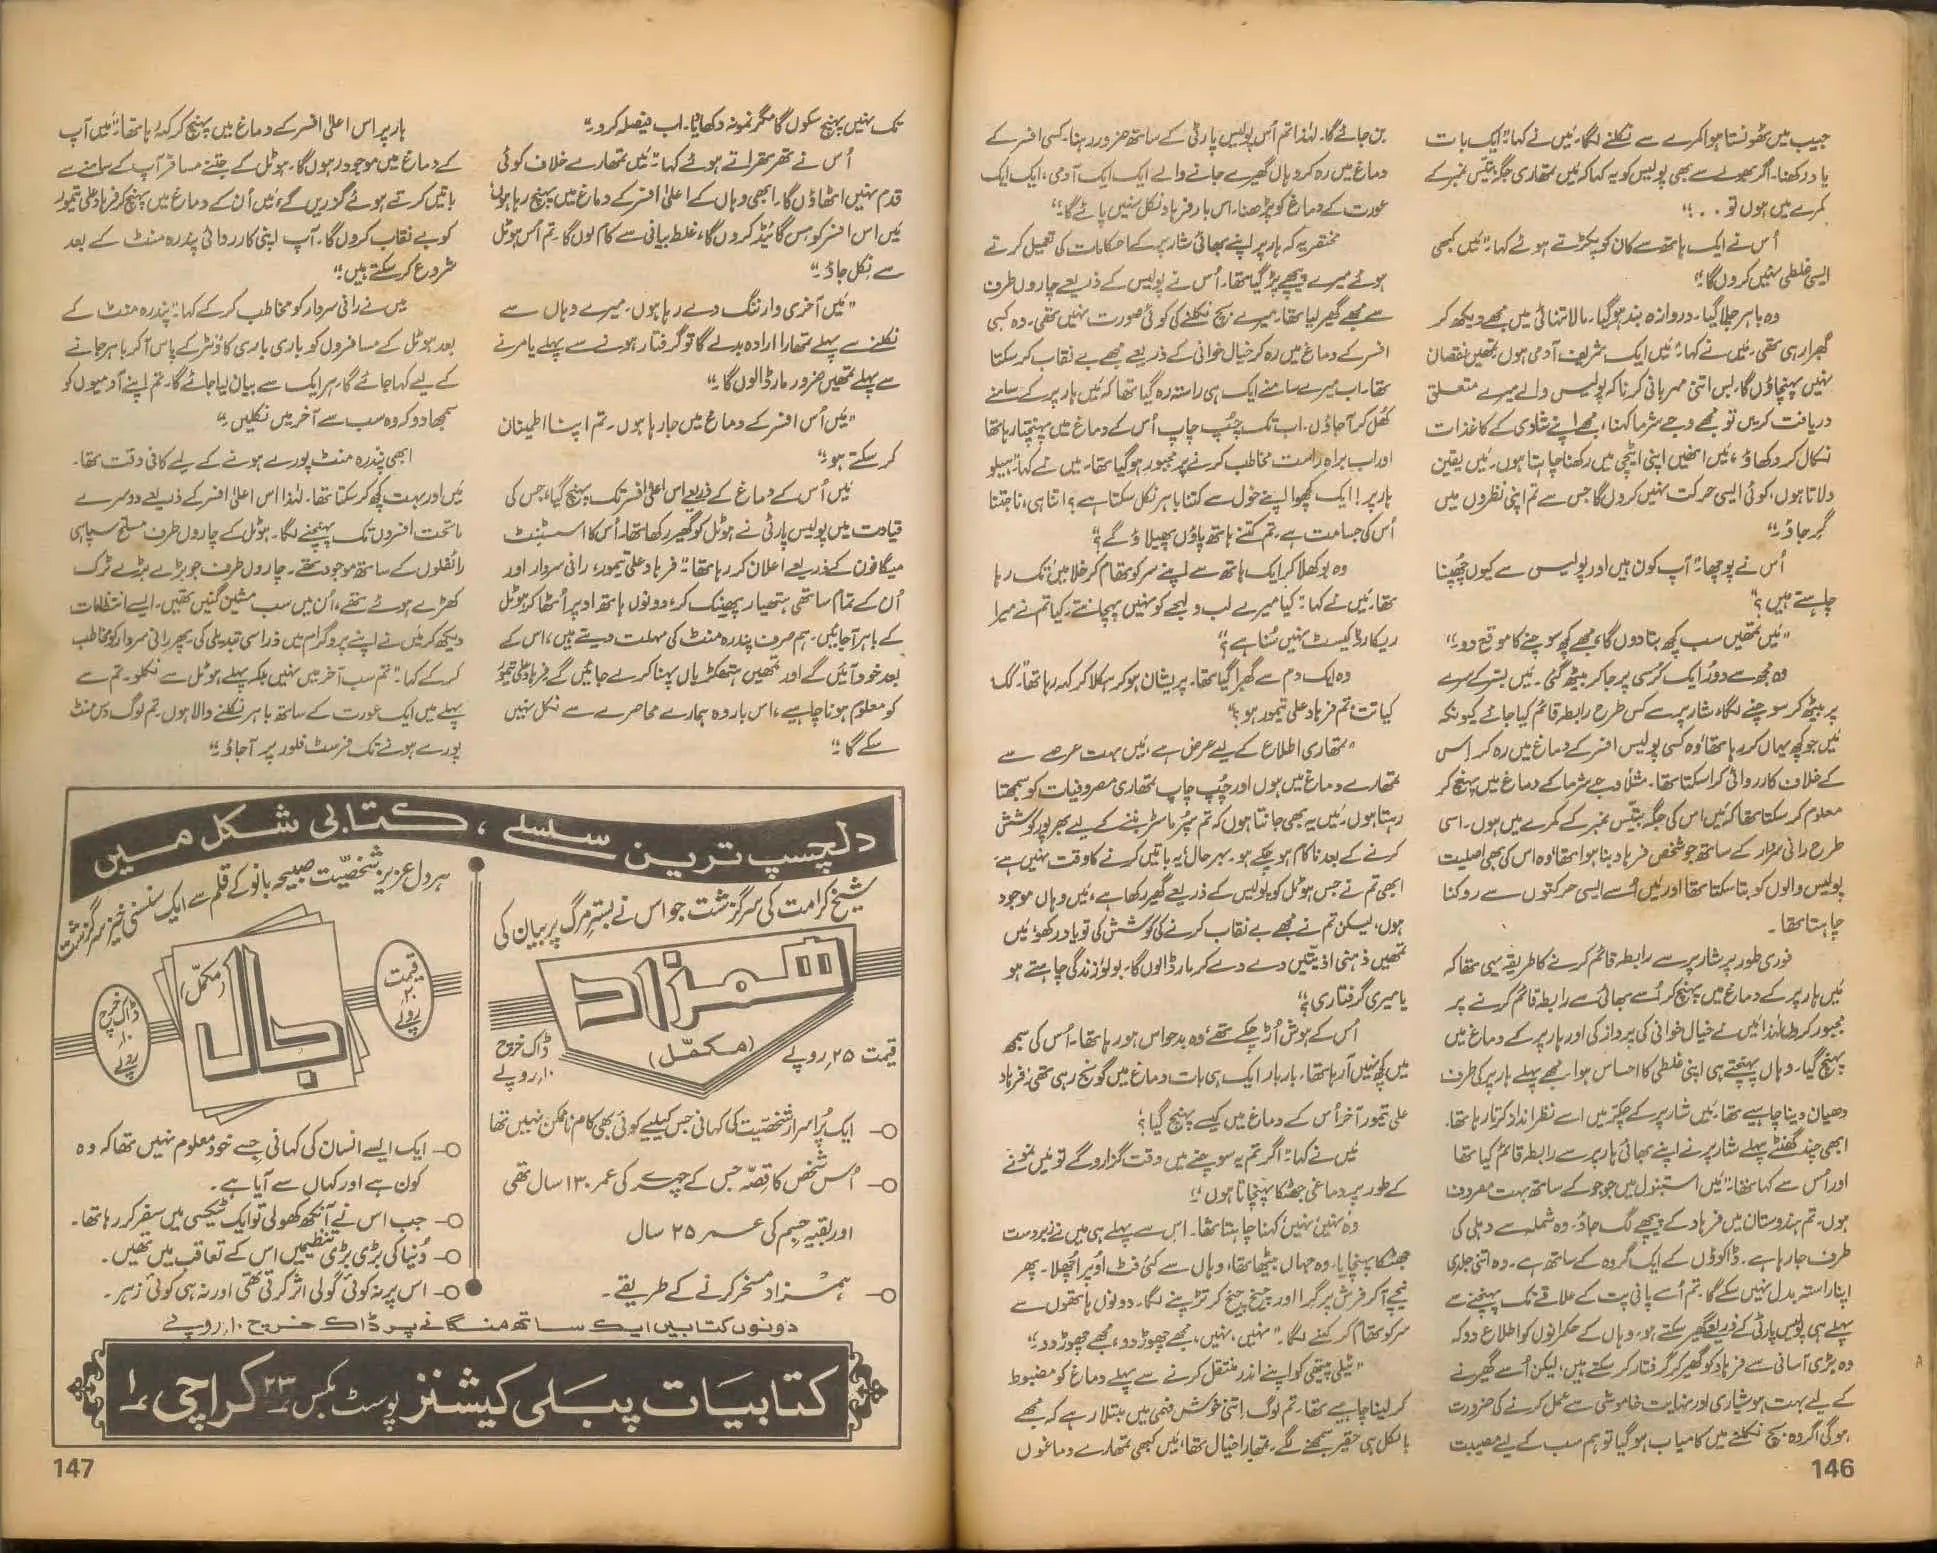 جیب میں ٹھونستا ہوا کمرے سے نکلنے لگا۔ میں نے کہا: "ایک بات
یاد رکھنا۔ اگر بھولے سے بھی پولیس کو یہ کہا کہ میں تمھاری جگہ بتیس نمبر کے
کمرے میں ہوں تو . . ."
اُس نے ایک ہاتھ سے کان کو پکڑتے ہوئے کہا: "میں کبھی
ایسی غلطی نہیں کروں گا۔"
وہ باہر چلا گیا۔ دروازہ بند ہو گیا۔ مالا تنہائی میں مجھے دیکھ کر
گھبرا رہی تھی۔ میں نے کہا: "میں ایک شریف آدمی ہوں تمھیں نقصان
نہیں پہنچاؤں گا۔ بس اتنی مہربانی کرنا کہ پولیس والے میرے متعلق
دریافت کریں تو مجھے وجے شرما کہنا، مجھے اپنے شادی کے کاغذات
نکال کر دکھاؤ، میں انھیں اپنی اٹیچی میں رکھنا چاہتا ہوں۔ میں یقین
دلاتا ہوں، کوئی ایسی حرکت نہیں کروں گا جس سے تم اپنی نظروں میں
گر جاؤ۔"
اُس نے پوچھا: "آپ کون ہیں اور پولیس سے کیوں چھپنا
چاہتے ہیں؟"
"میں تمھیں سب کچھ بتا دوں گا، مجھے کچھ سوچنے کا موقع دو۔"
وہ مجھ سے دور ایک کرسی پر جا کر بیٹھ گئی۔ میں بستر کے سرے
پر بیٹھ کر سوچنے لگا، شارپر سے کس طرح رابطہ قائم کیا جائے کیونکہ
میں جو کچھ یہاں کر رہا تھا، وہ کسی پولیس افسر کے دماغ میں رہ کر اس
کے خلاف کارروائی کرا سکتا تھا۔ مثلاً وجے شرما کے دماغ میں پہنچ کر
معلوم کر سکتا تھا کہ میں اس کی جگہ بتیس نمبر کے کمرے میں ہوں۔ اسی
طرح رانی سردار کے ساتھ جو شخص فرہاد بنا ہوا تھا، وہ اس کی بھی اصلیت
پولیس والوں کو بتا سکتا تھا اور میں اُسے ایسی حرکتوں سے روکنا
چاہتا تھا۔
فوری طور پر شارپر سے رابطہ قائم کرنے کا طریقہ یہی تھا کہ
میں ہارپر کے دماغ میں پہنچ کر اُسے بھائی سے رابطہ قائم کرنے پر
مجبور کرتا۔ لہٰذا میں نے خیال خوانی کی پرواز کی اور ہارپر کے دماغ میں
پہنچ گیا۔ وہاں پہنچتے ہی اپنی غلطی کا احساس ہوا۔ مجھے پہلے ہارپر کی طرف
دھیان دینا چاہیے تھا۔ میں شارپر کے چکر میں اسے نظر انداز کرتا رہا تھا۔
ابھی چند گھنٹے پہلے شارپر نے اپنے بھائی ہارپر سے رابطہ قائم کیا تھا
اور اُس سے کہا تھا: "میں استنبول میں جوجو کے ساتھ بہت مصروف
ہوں۔ تم ہندوستان میں فرہاد کے پیچھے لگ جاؤ۔ وہ شملہ سے دہلی کی
طرف جا رہا ہے۔ ڈاکوؤں کے ایک گروہ کے ساتھ ہے۔ وہ اتنی جلدی
اپنا راستہ بدل نہیں سکے گا۔ تم اُسے پانی پت کے علاقے تک پہنچنے سے
پہلے ہی پولیس پارٹی کے ذریعے گھیر سکتے ہو۔ وہاں کے حکمرانوں کو اطلاع دو کہ
وہ بڑی آسانی سے فرہاد کو گھیر کر گرفتار کر سکتے ہیں، لیکن اُسے گھیرنے
کے لیے بہت ہوشیاری اور نہایت خاموشی سے عمل کرنے کی ضرورت
ہو گی۔ اگر وہ بچ نکلنے میں کامیاب ہو گیا تو ہم سب کے لیے مصیبت
146
بن جائے گا۔ لہٰذا تم اُس پولیس پارٹی کے ساتھ ضرور رہنا۔ کسی افسر کے
دماغ میں رہ کر وہاں گھیرے جانے والے ایک ایک آدمی، ایک ایک
عورت کے دماغ کو پڑھنا۔ اس بار فرہاد نکل نہیں پائے گا۔"
مختصر یہ کہ ہارپر اپنے بھائی شارپر کے احکامات کی تعمیل کرتے
ہوئے میرے پیچھے پڑ گیا تھا۔ اُس نے پولیس کے ذریعے چاروں طرف
سے مجھے گھیر لیا تھا۔ میرے بچ نکلنے کی کوئی صورت نہیں تھی۔ وہ کسی
افسر کے دماغ میں رہ کر خیال خوانی کے ذریعے مجھے بے نقاب کر سکتا
تھا۔ اب میرے سامنے ایک ہی راستہ رہ گیا تھا کہ میں ہارپر کے سامنے
کھل کر آ جاؤں۔ اب تک چپ چاپ اُس کے دماغ میں پہنچتا رہا تھا
اور اب براہِ راست مخاطب کرنے پر مجبور ہو گیا تھا۔ میں نے کہا: "ہیلو
ہارپر! ایک کچھوا اپنے خول سے کتنا باہر نکل سکتا ہے؟ اتنا ہی، نا جتنا
اُس کی جسامت ہے۔ تم کتنے ہاتھ پاؤں پھیلاؤ گے؟"
وہ بوکھلا کر ایک ہاتھ سے اپنے سر کو تھام کر خلا میں تک رہا
تھا۔ میں نے کہا: "کیا میرے لب و لہجے کو نہیں پہچانتے۔ کیا تم نے میرا
ریکارڈ کیسٹ نہیں سنا ہے؟"
وہ ایک دم سے گھبرا گیا تھا۔ پریشان ہو کر ہکلا کر کہہ رہا تھا: "کک
کیا تت، تم فرہاد علی تیمور ہو؟"
"تمھاری اطلاع کے لیے عرض ہے، میں بہت عرصے سے
تمھارے دماغ میں ہوں اور چپ چاپ تمھاری مصروفیات کو سمجھتا
رہتا ہوں۔ میں یہ بھی جانتا ہوں کہ تم سُپر ماسٹر بننے کے لیے بھرپور کوشش
کرنے کے بعد ناکام ہو چکے ہو۔ بہرحال، یہ باتیں کرنے کا وقت نہیں ہے۔
ابھی تم نے جس ہوٹل کو پولیس کے ذریعے گھیر رکھا ہے، میں وہاں موجود
ہوں، لیکن تم نے مجھے بے نقاب کرنے کی کوشش کی تو یاد رکھو، میں
تمھیں ذہنی اذیتیں دے دے کر مار ڈالوں گا۔ بولو، زندگی چاہتے ہو
یا میری گرفتاری؟"
اُس کے ہوش اُڑ چکے تھے، وہ بدحواس ہو رہا تھا۔ اُس کی سمجھ
میں کچھ نہیں آ رہا تھا۔ بار بار ایک ہی بات دماغ میں گونج رہی تھی، فرہاد
علی تیمور آخر اُس کے دماغ میں کیسے پہنچ گیا؟
میں نے کہا: "اگر تم یہ سوچنے میں وقت گزارو گے تو میں نمونے
کے طور پر دماغی جھٹکا پہنچاتا ہوں۔"
وہ نہیں، نہیں، کہنا چاہتا تھا۔ اس سے پہلے ہی میں نے زبردست
جھٹکا پہنچایا۔ وہ جہاں بیٹھا تھا، وہاں سے کئی فٹ اوپر اُچھلا۔ پھر
نیچے آ کر فرش پر گرا اور چیخ چیخ کر تڑپنے لگا۔ دونوں ہاتھوں سے
سر کو تھام کر کہنے لگا۔ "نہیں، نہیں، مجھے چھوڑ دو، مجھے چھوڑ دو۔"
"ٹیلی پیتھی کو اپنے اندر منتقل کرنے سے پہلے دماغ کو مضبوط
کر لینا چاہیے تھا۔ تم لوگ اتنی خوش فہمی میں مبتلا رہے کہ مجھے
بالکل ہی حقیر سمجھنے لگے۔ تمھارا خیال تھا، میں کبھی تمھارے دماغوں
تک نہیں پہنچ سکوں گا مگر نمونہ دکھایا۔ اب فیصلہ کرو۔"
اُس نے تھرتھراتے ہوئے کہا: "میں تمھارے خلاف کوئی
قدم نہیں اٹھاؤں گا۔ ابھی وہاں کے اعلیٰ افسر کے دماغ میں پہنچ رہا ہوں۔
میں اس افسر کو مس گائیڈ کروں گا، غلط بیانی سے کام لوں گا۔ تم اُس ہوٹل
سے نکل جاؤ۔"
"میں آخری وارننگ دے رہا ہوں۔ میرے وہاں سے
نکلنے سے پہلے تمھارا ارادہ بدلے گا تو گرفتار ہونے سے پہلے یا مرنے
سے پہلے تمھیں ضرور مار ڈالوں گا۔"
"میں اُس افسر کے دماغ میں جا رہا ہوں۔ تم اپنا اطمینان
کر سکتے ہو۔"
میں اُس کے دماغ کے ذریعے اس اعلیٰ افسر تک پہنچ گیا، جس کی
قیادت میں پولیس پارٹی نے ہوٹل کو گھیر رکھا تھا۔ اُس کا اسسٹنٹ
میگافون کے ذریعے اعلان کر رہا تھا: "فرہاد علی تیمور، رانی سردار اور
اُن کے تمام ساتھی ہتھیار پھینک کر، دونوں ہاتھ اوپر اُٹھا کر ہوٹل
کے باہر آ جائیں۔ ہم صرف پندرہ منٹ کی مہلت دیتے ہیں، اس کے
بعد خود آئیں گے اور تمھیں ہتھکڑیاں پہنا کر لے جائیں گے۔ فرہاد علی تیمور
کو معلوم ہونا چاہیے، اس بار وہ ہمارے محاصرے سے نکل نہیں
سکے گا۔"
ہارپر اس اعلیٰ افسر کے دماغ میں پہنچ کر کہہ رہا تھا: "میں آپ
کے دماغ میں موجود رہوں گا۔ ہوٹل کے جتنے مسافر آپ کے سامنے سے
باتیں کرتے ہوئے گزریں گے، میں اُن کے دماغ میں پہنچ کر فرہاد علی تیمور
کو بے نقاب کروں گا۔ آپ اپنی کارروائی پندرہ منٹ کے بعد
شروع کر سکتے ہیں۔"
میں نے رانی سردار کو مخاطب کر کے کہا: "پندرہ منٹ کے
بعد ہوٹل کے مسافروں کو باری باری کاؤنٹر کے پاس آ کر باہر جانے
کے لیے کہا جائے گا۔ ہر ایک سے بیان لیا جائے گا۔ تم اپنے آدمیوں کو
سمجھا دو کہ وہ سب سے آخر میں نکلیں۔"
ابھی پندرہ منٹ پورے ہونے کے لیے کافی وقت تھا۔
میں اور بہت کچھ کر سکتا تھا۔ لہٰذا اس اعلیٰ افسر کے ذریعے دوسرے
ماتحت افسروں تک پہنچنے لگا۔ ہوٹل کے چاروں طرف مسلح سپاہی
رائفلوں کے ساتھ موجود تھے۔ چاروں طرف جو بڑے بڑے ٹرک
کھڑے ہوئے تھے، اُن میں سب مشین گنیں تھیں۔ ایسے انتظامات
دیکھ کر میں نے اپنے پروگرام میں ذرا سی تبدیلی کی۔ پھر رانی سردار کو مخاطب
کر کے کہا: "تم سب آخر میں نہیں بلکہ پہلے ہوٹل سے نکلو۔ تم سے
پہلے میں ایک عورت کے ساتھ باہر نکلنے والا ہوں۔ تم لوگ دس منٹ
پورے ہونے تک فرسٹ فلور پر آ جاؤ۔"
دلچسپ ترین سلسلے، کتابی شکل میں
شیخ کرامت کی سرگزشت جو اس نے بسترِ مرگ پر بیان کی
ہمزاد
(مکمّل)
قیمت ۲۵ روپے
ڈاک خرچ
۱۰ روپے
ایک پُراسرار شخصیّت کی کہانی جس کیلیے کوئی بھی کام ناممکن نہیں تھا
اُس شخص کا قصّہ جس کے چہرے کی عمر ۱۳۰ سال تھی
اور بقیہ جسم کی عمر ۲۵ سال
ہمزاد مسخر کرنے کے طریقے۔
ہر دل عزیز شخصیّت صبیحہ بانو کے قلم سے ایک سنسنی خیز سرگزشت
جال
(مکمّل)
قیمت
۲۰
روپے
ڈاک خرچ
۱۰
روپے
ایک ایسے انسان کی کہانی جسے خود معلوم نہیں تھا کہ وہ
کون ہے اور کہاں سے آیا ہے۔
جب اس نے آنکھ کھولی تو ایک ٹیکسی میں سفر کر رہا تھا۔
دُنیا کی بڑی بڑی تنظیمیں اس کے تعاقب میں تھیں۔
اس پر نہ کوئی گولی اثر کرتی تھی اور نہ ہی کوئی زہر۔
دونوں کتابیں ایک ساتھ منگانے پر ڈاک خرچ ۱۰ روپے
کتابیات پبلی کیشنز پوسٹ بکس ۲۳ کراچی ۱
147